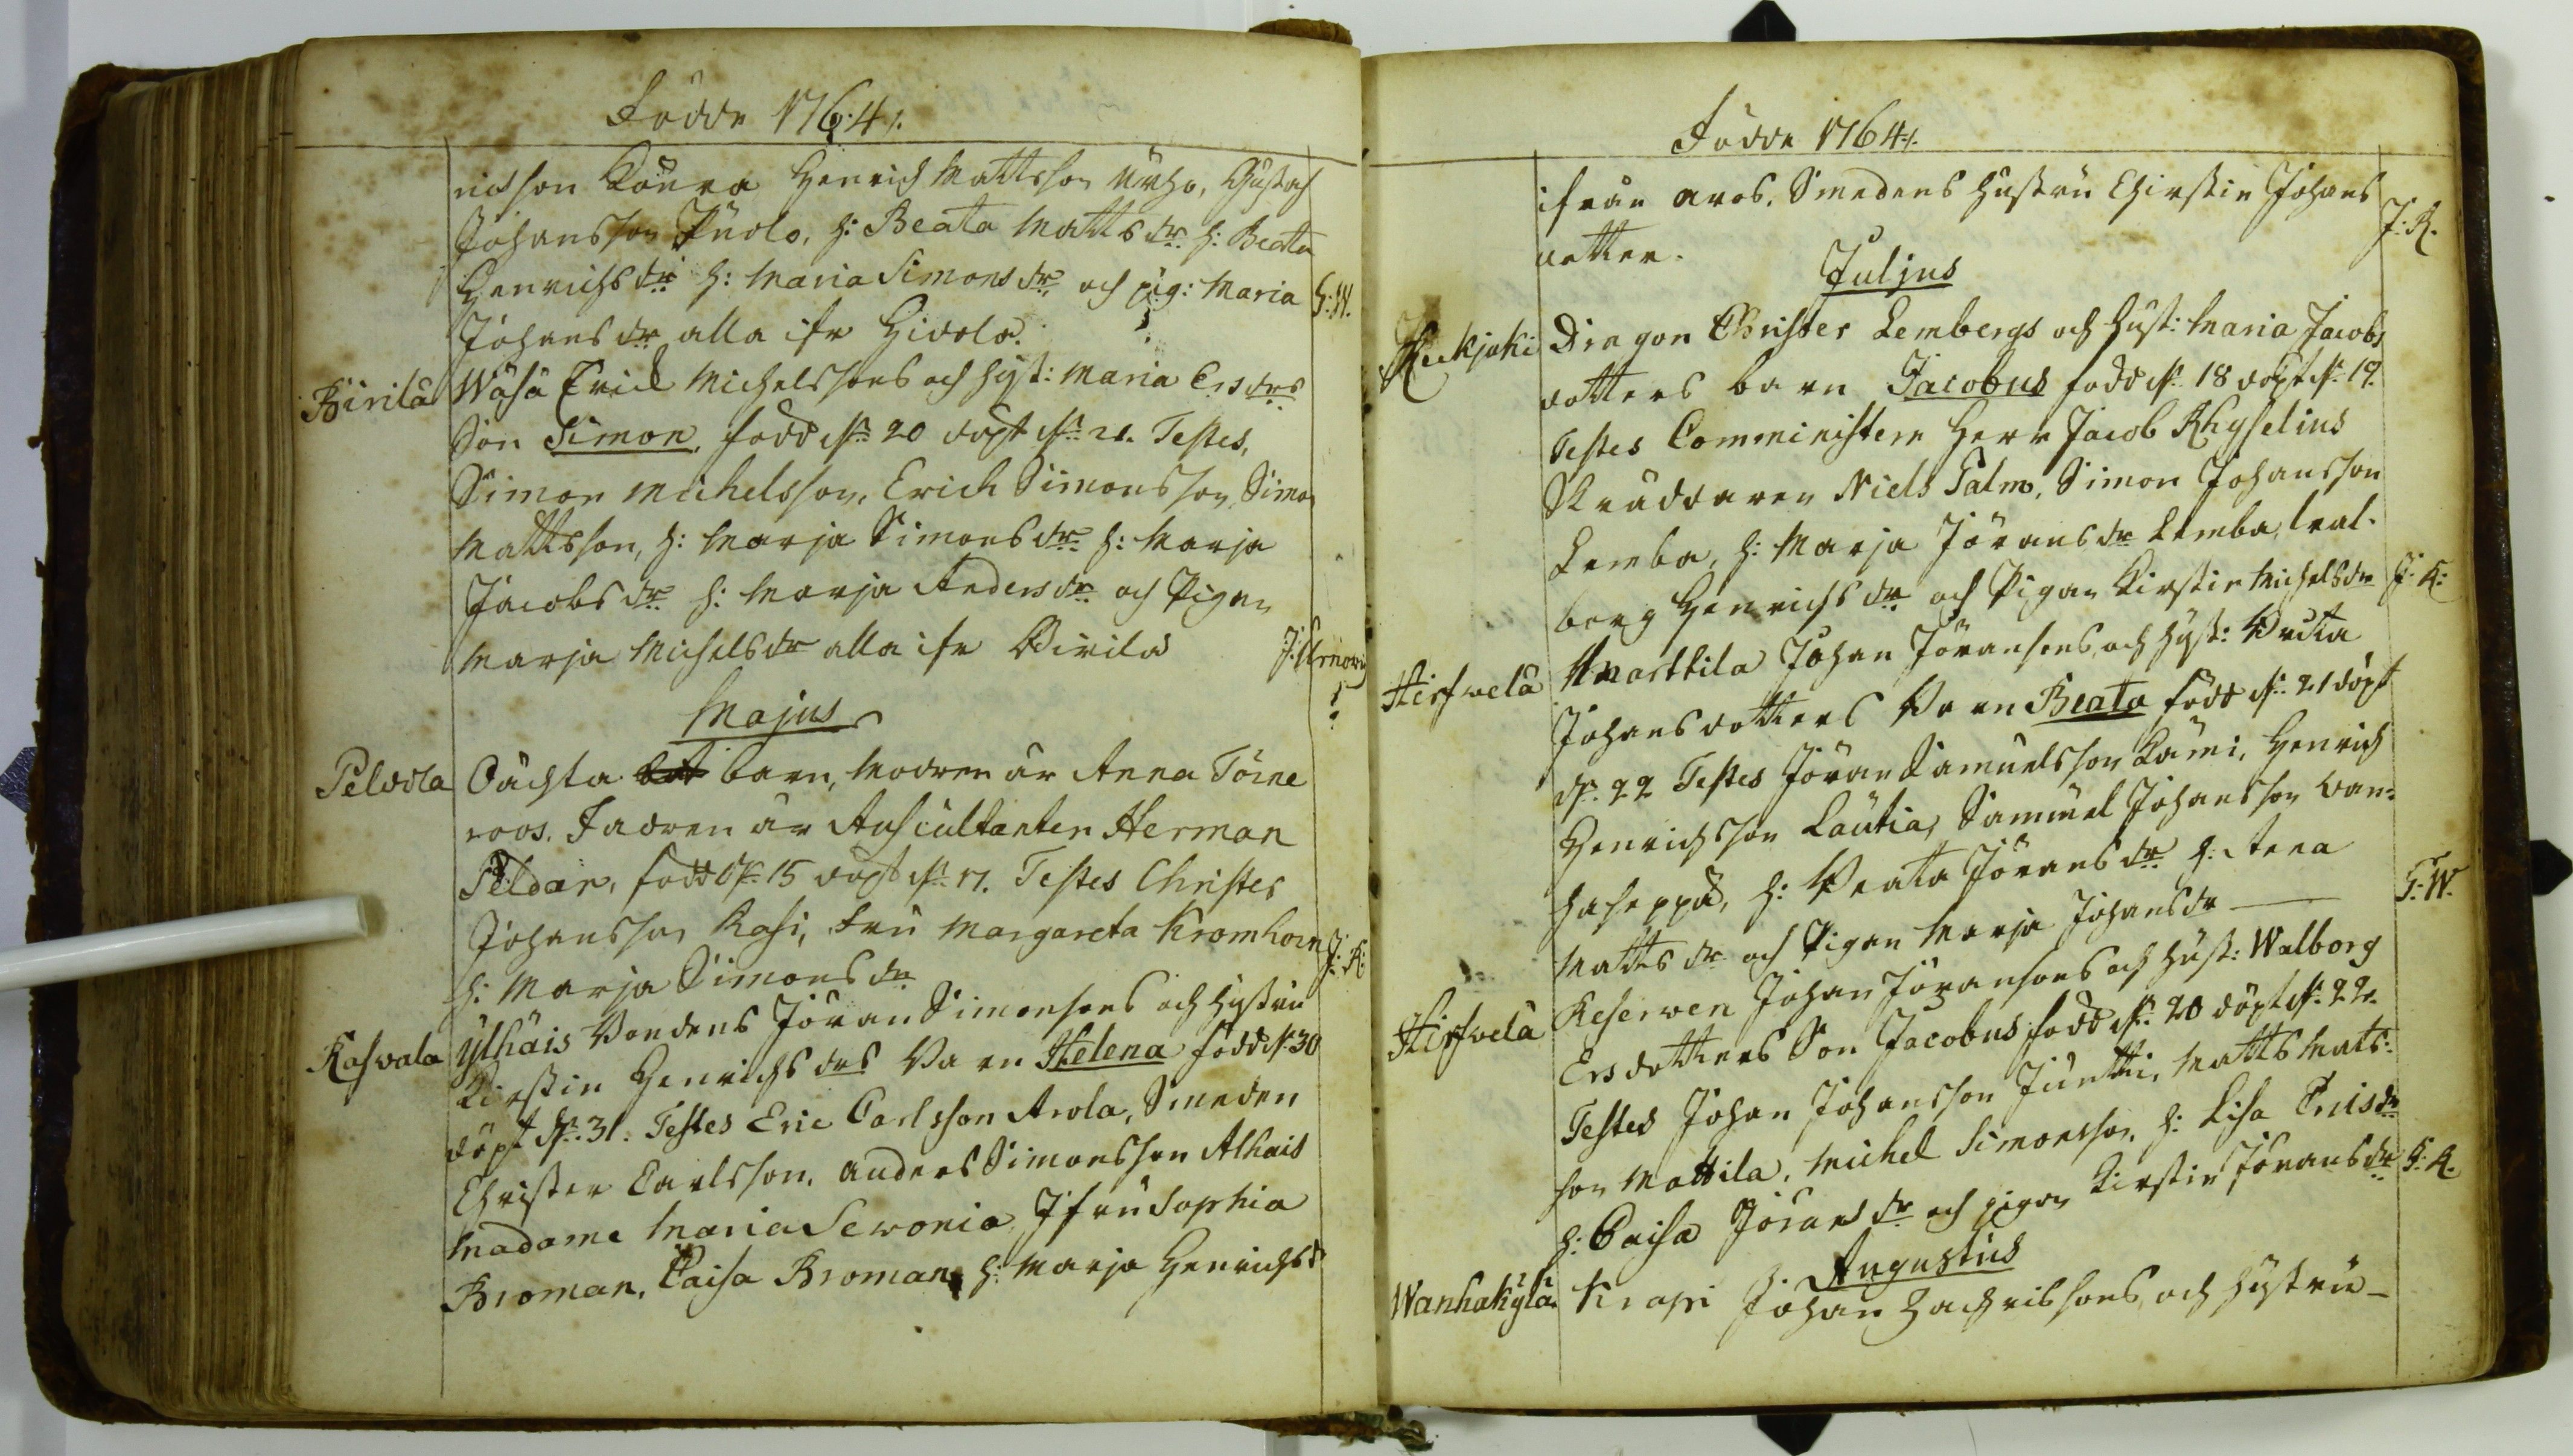 Födde 1764/.
richsson Knura Henrich Mattsson Urho, Gustaf
Johansson Pudo, h: Beata Matts dr. h: Beata
Henrichs dr. h: Maria Simons dr. och pig: Maria H: W.
Johans dr alla ifr Hidola.
Birilä Wäsä Erick Michelssons och Hust: Maria Ers drs
Son Simon, född d. 20 döpt d. 21. Testes,
Simon Michelsson, Erich Simonsson, Simon
Mattsson, h: Marja Simons dr. h: Marja
Jacobs dr. h: Marja Anders dr. och Pigan
Marja Michels dr alla ifr Birila
Majus
Peldola Oächta barn, Modren är Anna Törne
roos. Fadren är Auscultanten Herman
Peldan, född d. 15 döpt d. 17. Testes Christer
Johansson Rasi, fru Margareta Kromhorn
h: Marja Simons dr J: K:
Kasvala Ylhäis Bondens Jöran Simonsons och Hustru
Kirstin Henrichs drs Barn Helena född d. 30
döpt d. 31. Testes Eric Carlsson Arola, Smeden
Christer Carlsson, Anders Simonsson Alhais
Madame Maria Seronia Jfru Sophia
Broman, Caisa Broman, h: Marja Henrichsd
Födde 1764/.
ifrån aros. Smedens Hustru Chirstin Johans
dotter. J: K.
Juljus
Dragon Christer Lembergs och Hust: Maria Jacobs
dotters barn Jacobus född d. 18 döpt d. 19.
Testes Comministern Herr Jacob Rhyselius
Skräddaren Niels Palm, Simon Johansson
Lemba, h: Marja Jörans dr Lemba, Wal-
borg Henrichs dr. och Pigan Kirstin Michels dr J: K:
Hirfwelä Marttila Johan Jöransons och Hust:
Johansdotters Barn Beata född d. 21 döpt
d. 22 Testes Jöran Samuelsson Kämi, Henrich
Henrichsson Lautia, Sammuel Johansson Wan-
haseppä, h: Beata Jörans dr. h: Anna
Matts dr och Pigan Marja Johans dr G: W.
Hirfvelä Reserven Johan Jöransons och Hust: Walborg
Ersdotters Son Jacobus född d. 20 döpt d. 22.
Testes Johan Johansson Juntti, Matts Mats-
son Mattila, Michel Simonsson, h: Lisa
h: Caisa Jörans dr och pigan Kirstin Jörans dr J: K.
Augustus
Wanhakylä Krapi Johan Zachrissons, och Hustru